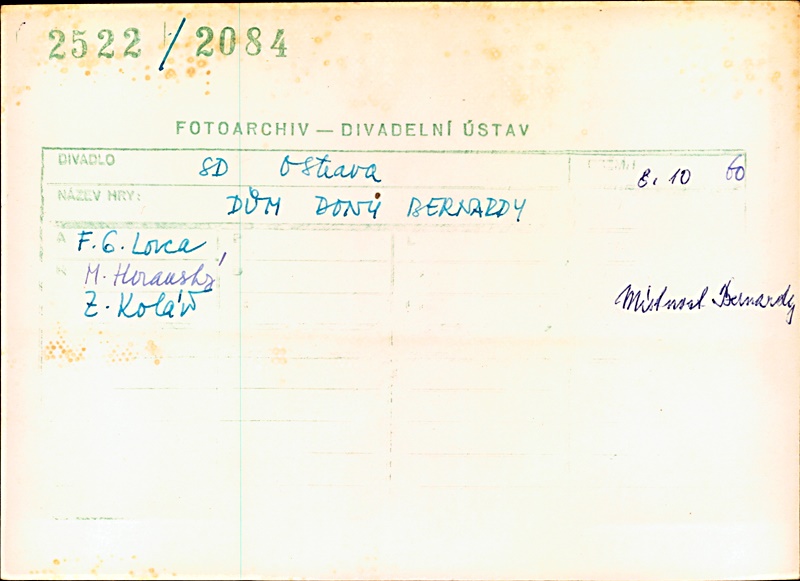 2522/2084
FOTOARCHIV — DIVADELNÍ ÚSTAV
DIVADLO SD Ostrava 8. 10 60
NÁZEV HRY: DŮM DONY BERNARDY
A F. G. Lorca
M. Horanský
Z. Kolář
Místnost Bernardy